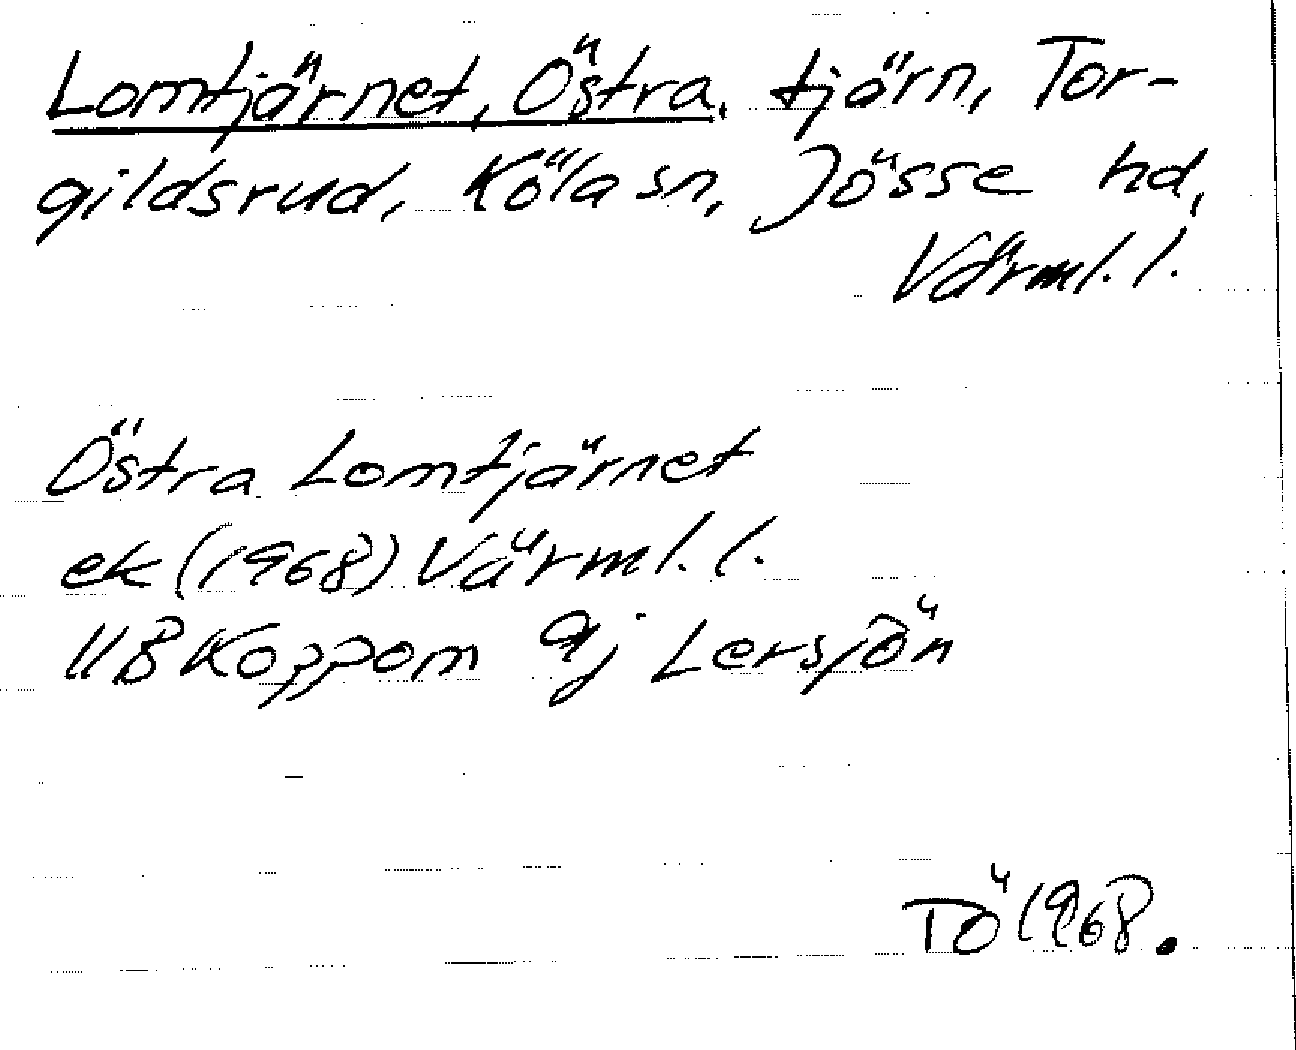 Lomtjärnet, Östra, tjärn, Tor-
gildsrud, Köla sn, Jösse hd,
Värml. l.
Östra Lomtjärnet
ek (1968) Värml. l.
11B Koppom 9j Lersjön
TÖ 1968.